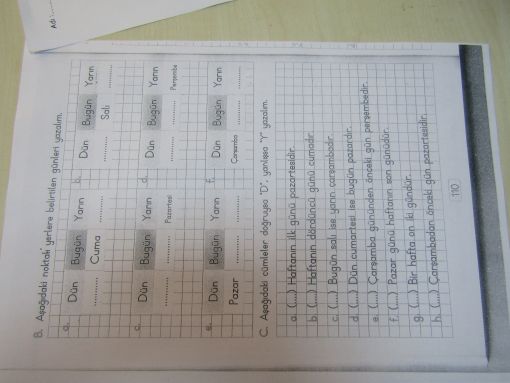 Adı :......
B. Aşağıdaki noktalı yerlere belirtilen günleri yazalım.
a. Dün Bugün Yarın b. Dün Bugün Yarın
.......... Cuma .......... .......... Salı ..........
c. Dün Bugün Yarın d. Dün Bugün Yarın
.......... .......... Pazartesi .......... .......... Perşembe
e. Dün Bugün Yarın f. Dün Bugün Yarın
Pazar .......... .......... Çarşamba .......... ..........
C. Aşağıdaki cümleler doğruysa "D", yanlışsa "Y" yazalım.
a. (....) Haftanın ilk günü pazartesidir.
b. (....) Haftanın dördüncü günü cumadır.
c. (....) Bugün salı ise yarın çarşambadır.
d. (....) Dün cumartesi ise bugün pazardır.
e. (....) Çarşamba gününden önceki gün perşembedir.
f. (....) Pazar günü haftanın son günüdür.
g. (....) Bir hafta on iki gündür.
h. (....) Çarşambadan önceki gün pazartesidir.
110